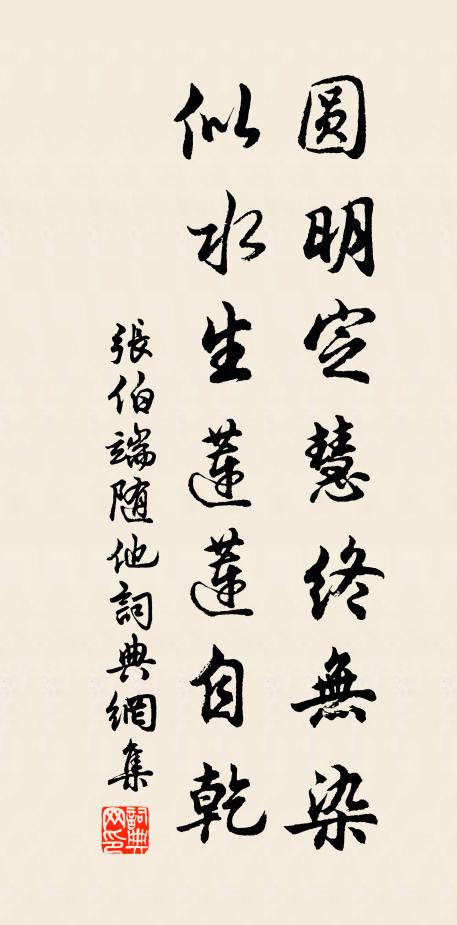 圓明定慧終無染
似水生蓮蓮自乾
張伯端隨他詞典網集
詞典網印